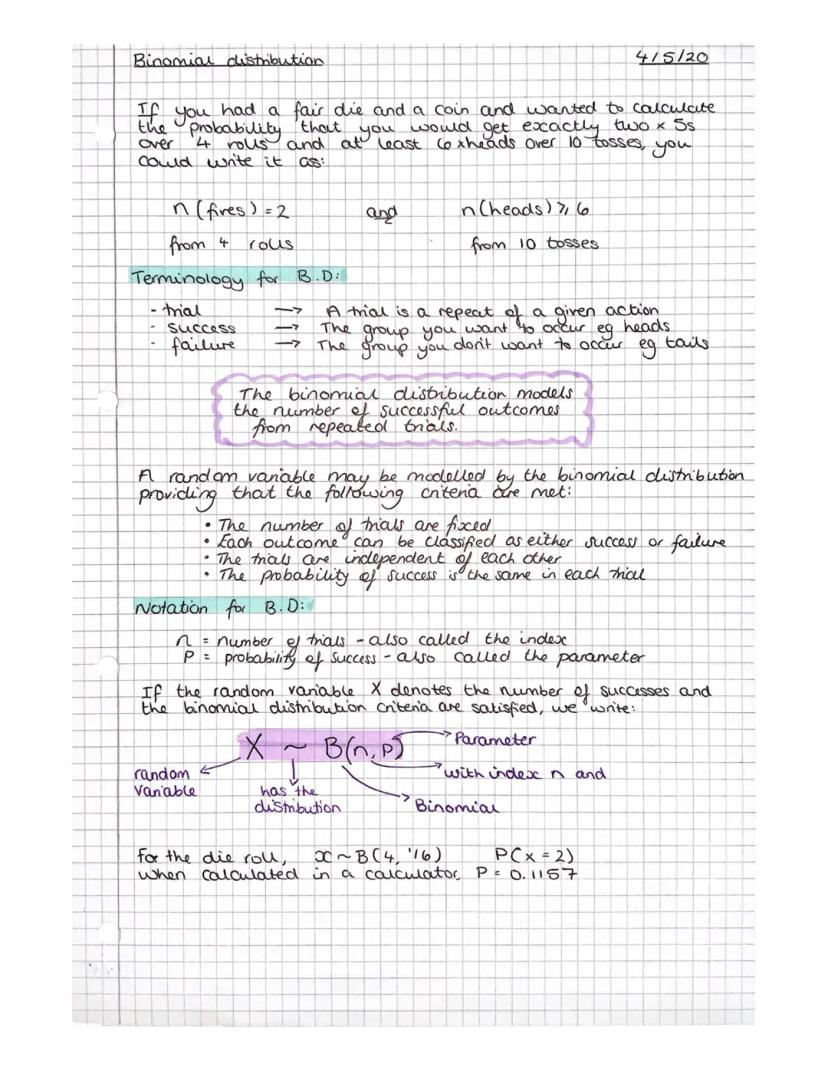 Binomial distribution 4/5/20
If you had a fair die and a coin and wanted to calculate
the probability that you would get excactly two x 5s
over 4 rolls and at least 6 x heads over 10 tosses, you
could write it as:
n(fives) = 2 and n(heads) ⩾ 6
from 4 rolls from 10 tosses
Terminology for B.D:
- trial → A trial is a repeat of a given action
- success → The group you want to occur eg heads
- failure → The group you don't want to occur eg tails
The binomial distribution models
the number of successful outcomes
from repeated trials.
A random variable may be modelled by the binomial distribution
providing that the following criteria are met:
• The number of trials are fixed
• Each outcome can be classified as either success or failure
• The trials are independent of each other
• The probability of success is the same in each trial
Notation for B.D:
n = number of trials - also called the index
P = probability of success - also called the parameter
If the random variable X denotes the number of successes and
the binomial distribution criteria are satisfied, we write:
X ~ B(n,p) Parameter
random with index n and
variable has the
distribution Binomial
For the die roll, x ~ B(4, 1/6) P(x = 2)
when calculated in a calculator, P = 0.1157